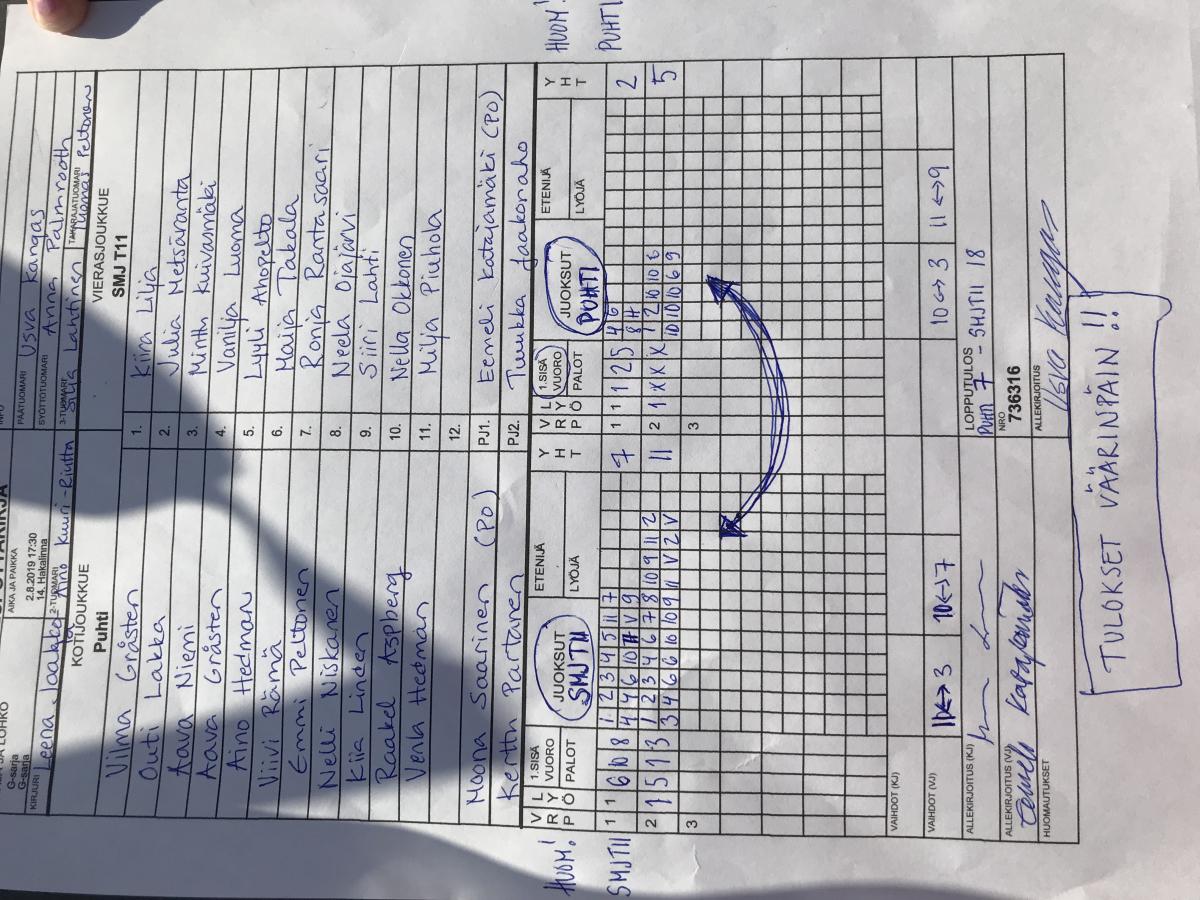 PÖYTÄKIRJA
JA LOHKO
G-sarja
G-sarja
AIKA JA PAIKKA
2.8.2019 17:30
14, Hakalinna
INFO
PÄÄTUOMARI Usva Kangas
SYÖTTÖTUOMARI Anna Palmrooth
KIRJURI Leena Jaakkola
2-TUOMARI Aino Kuuri-Riutta
3-TUOMARI Silja Lahtinen
TAKARAJATUOMARI Tuomas Peltonen
KOTIJOUKKUE
Puhti
VIERASJOUKKUE
SMJ T11
Vilma Gråsten 1. Kiira Lilja
Outi Lakka 2. Julia Metsäranta
Aava Niemi 3. Minttu Kuivasmäki
Aava Gråsten 4. Vanilja Luoma
Aino Hedman 5. Lyyli Ahopelto
Viivi Rämä 6. Maija Takala
Emmi Peltonen 7. Ronja Rantasaari
Nelli Niskanen 8. Neela Ojajärvi
Kiia Linden 9. Siiri Lahti
Raakel Aspberg 10. Nella Okkonen
Venla Hedman 11. Milja Piuhola
12.
Moona Saarinen (PO) PJ1. Eemeli Katajamäki (PO)
Kerttu Partanen PJ2. Tuukka Jaakonaho
HUOM! V R P L Y Ö 1.SISÄ VUORO PALOT JUOKSUT SMJT11 ETENIJÄ LYÖJÄ Y H T V R P L Y Ö 1.SISÄ VUORO PALOT JUOKSUT PUHTI ETENIJÄ LYÖJÄ Y H T HUOM!
SMJT11 PUHTI
1 1 6 10 8 1 2 3 4 5 11 7 7 1 1 1 2 5 4 6 2
4 4 6 10 11 V 9 8 11
2 1 5 1 3 1 2 3 4 6 7 8 10 9 11 2 11 2 1 X X X 1 2 10 10 8 5
3 4 6 6 10 10 9 11 V 2 V 10 10 10 6 9
3 3
VAIHDOT (KJ)
VAIHDOT (VJ) 11<->3 10<->7 10<->3 11<->9
ALLEKIRJOITUS (KJ)
LOPPUTULOS
PUHTI 7 - SMJT11 18
ALLEKIRJOITUS (VJ)
NRO
736316
HUOMAUTUKSET
ALLEKIRJOITUS
Usva Kangas
TULOKSET VÄÄRINPÄIN !!